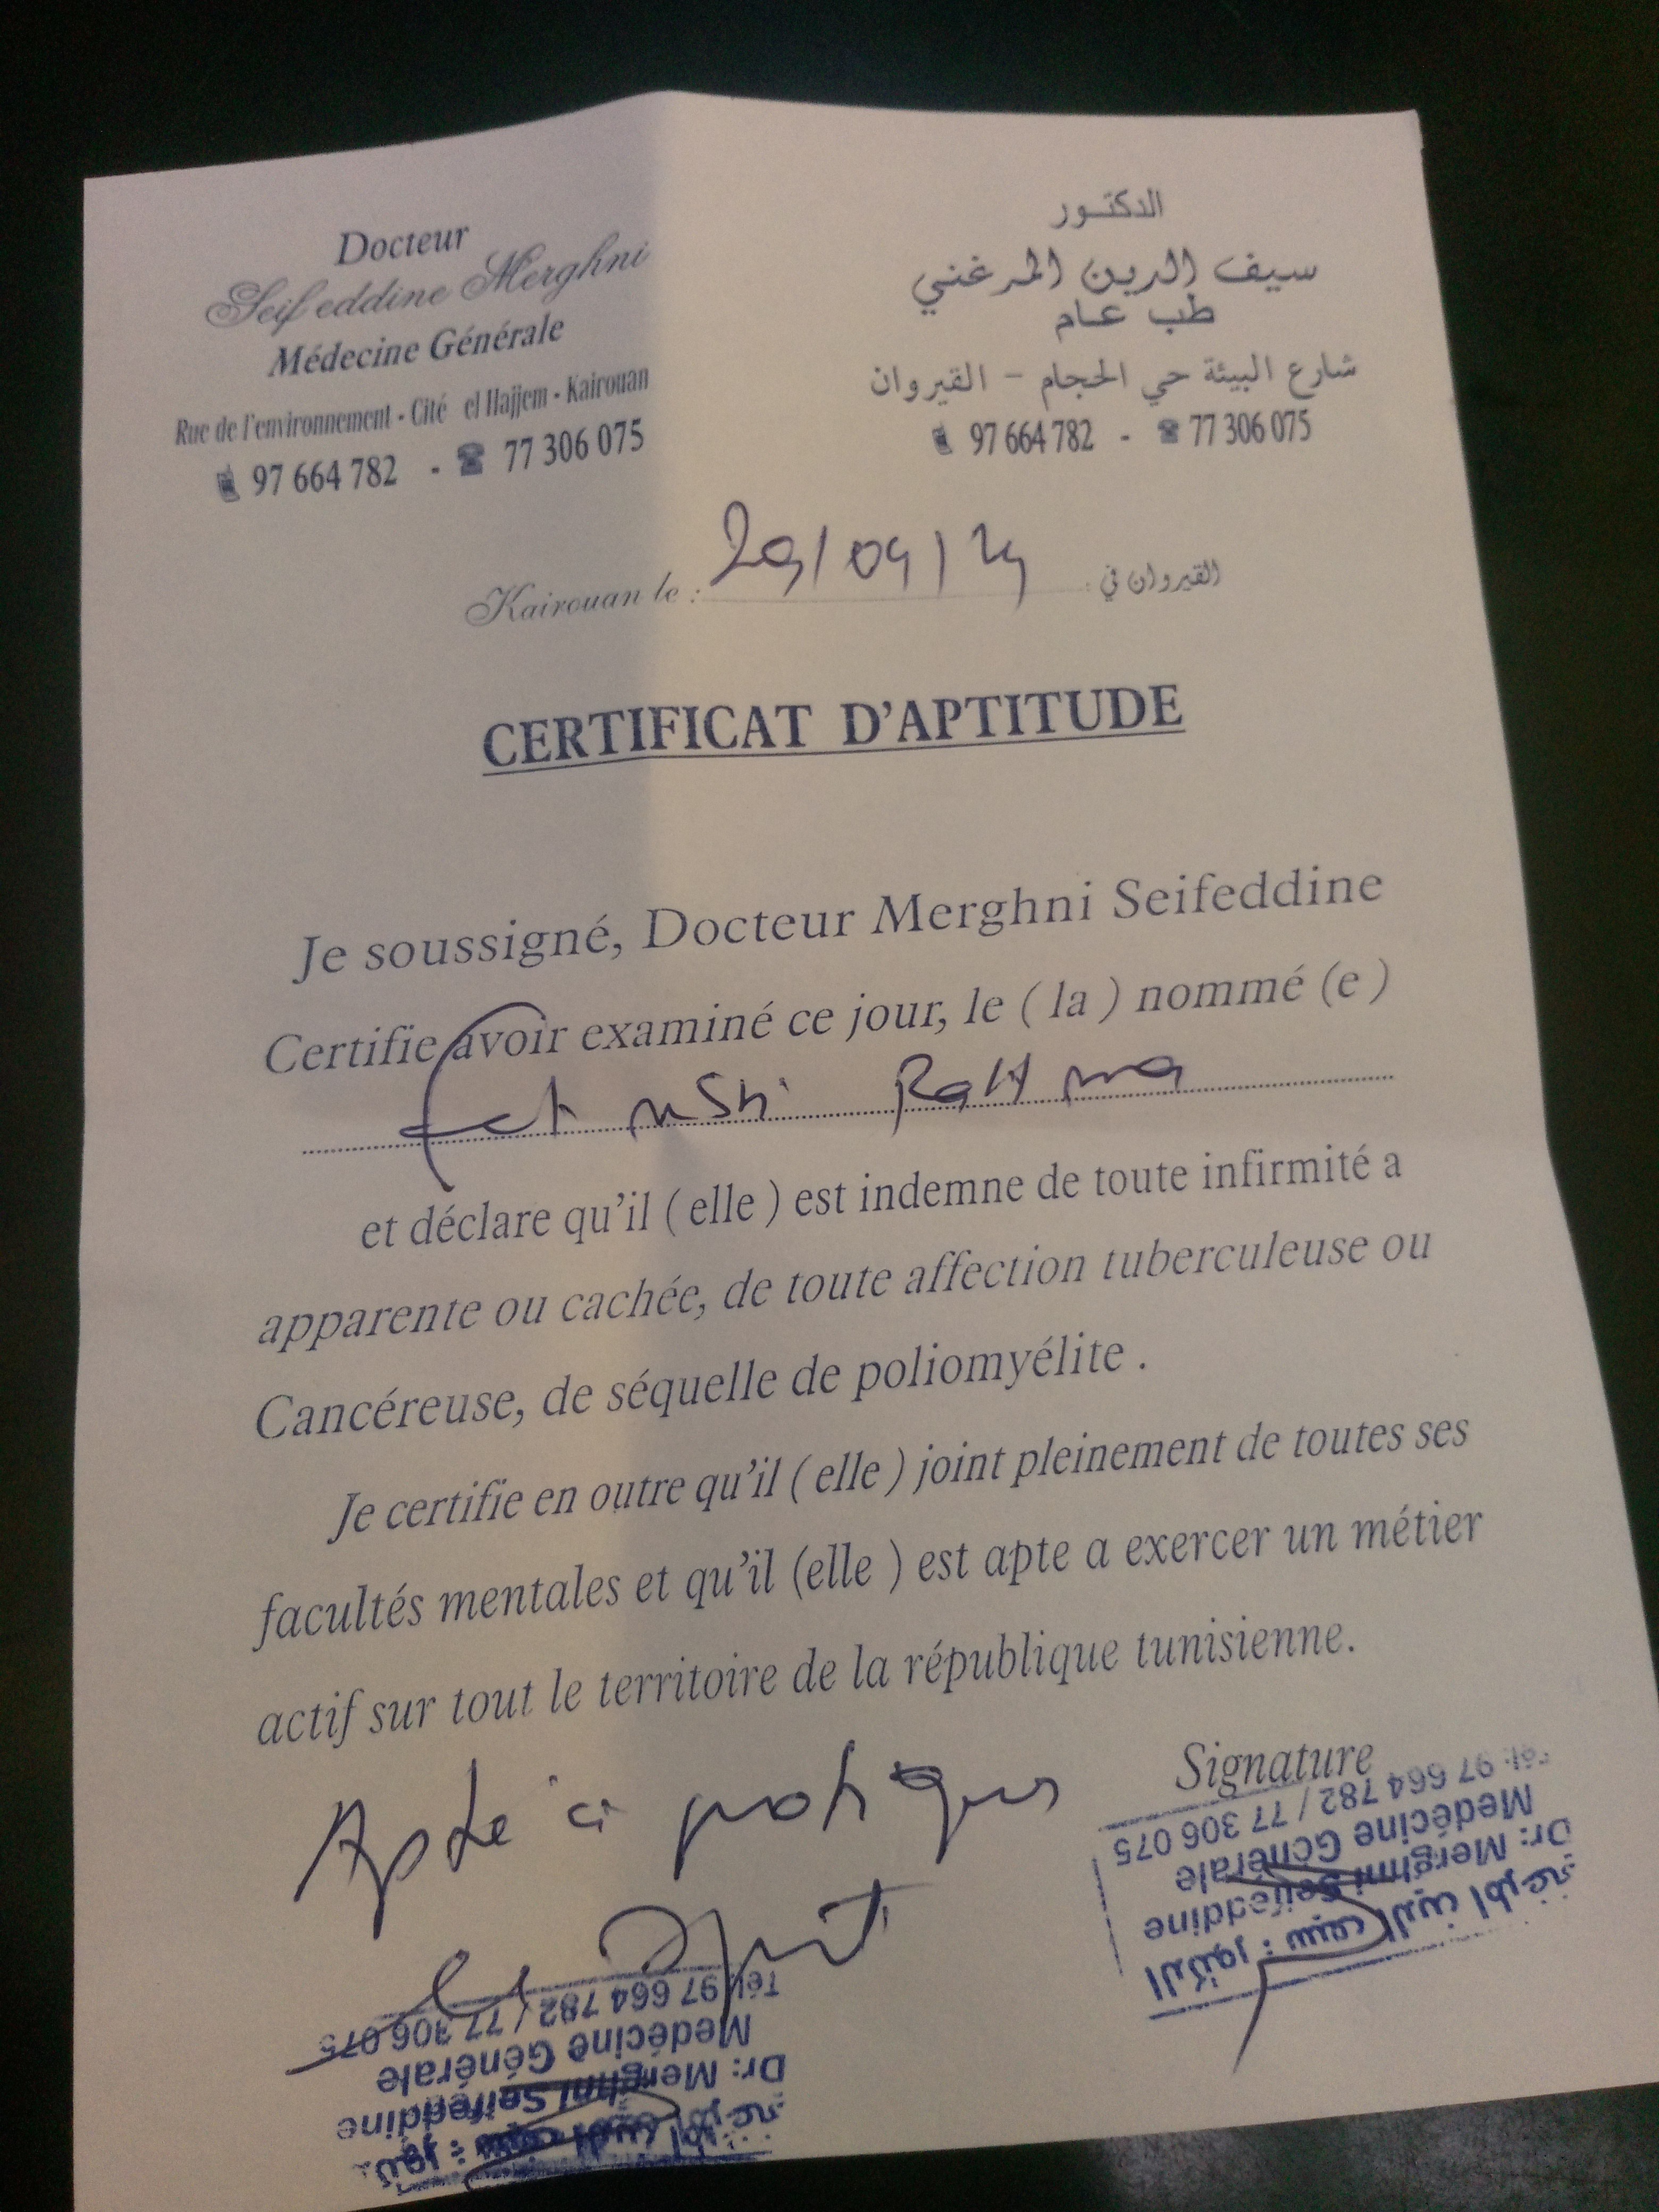 Docteur
Seif eddine Merghni
Médecine Générale
Rue de l'environnement - Cité el Hajjem - Kairouan
97 664 782 - 77 306 075
الدكتور
سيف الدين المرغني
طب عام
شارع البيئة حي الحجام - القيروان
97 664 782 - 77 306 075
Kairouan le : 29/04/24 القيروان في
CERTIFICAT D'APTITUDE
Je soussigné, Docteur Merghni Seifeddine
Certifie avoir examiné ce jour, le ( la ) nommé (e )
Rahma
et déclare qu'il ( elle ) est indemne de toute infirmité a
apparente ou cachée, de toute affection tuberculeuse ou
Cancéreuse, de séquelle de poliomyélite .
Je certifie en outre qu'il ( elle ) joint pleinement de toutes ses
facultés mentales et qu'il (elle ) est apte a exercer un métier
actif sur tout le territoire de la république tunisienne.
Apte à pratiquer
le sport
Signature
الدكتور : سيف الدين المرغني
Dr: Merghni Seifeddine
Medécine Générale
Tél: 97 664 782 / 77 306 075
Dr: Merghni Seifeddine
Medécine Générale
Tél: 97 664 782 / 77 306 075